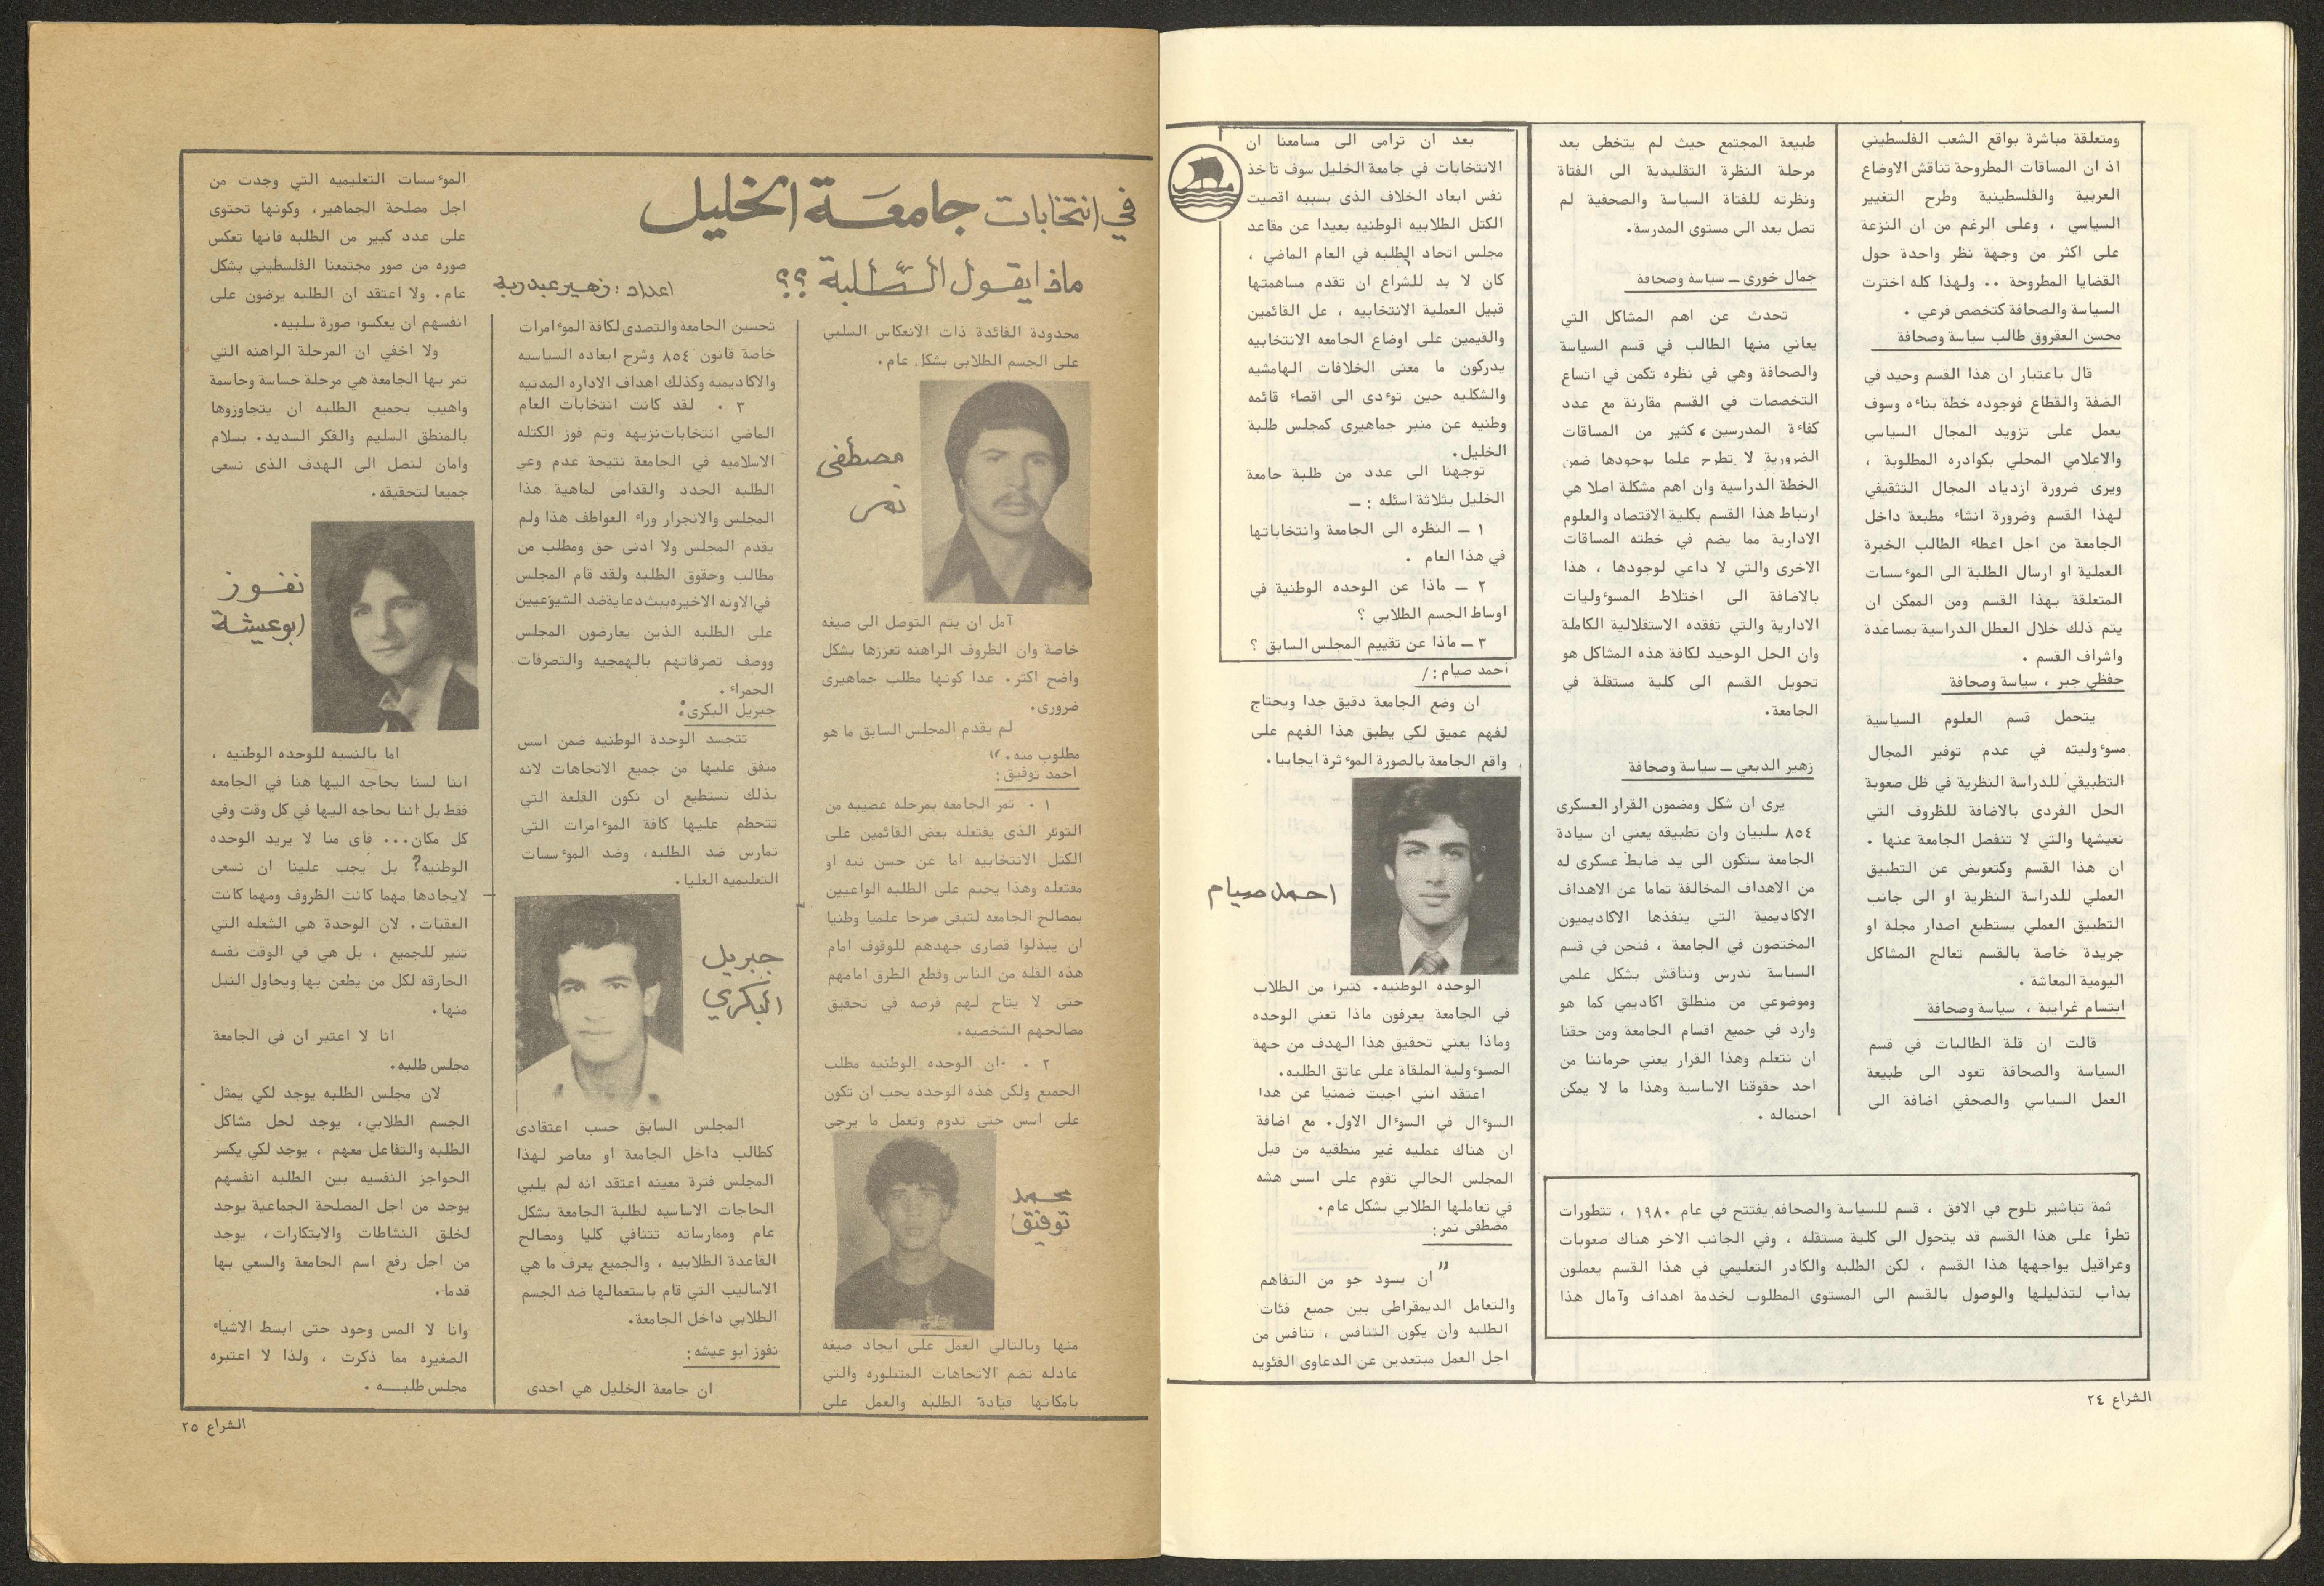 ومتعلقة مباشرة بواقع الشعب الفلسطيني
اذ ان المساقات المطروحة تناقش الاوضاع
العربية والفلسطينية وطرح التغيير
السياسي ، وعلى الرغم من ان النزعة
على اكثر من وجهة نظر واحدة حول
القضايا المطروحة .. ولهذا كله اخترت
السياسة والصحافة كتخصص فرعي .
محسن العقروق طالب سياسة وصحافة
قال باعتبار ان هذا القسم وحيد في
الضفة والقطاع فوجوده خطة بناءه وسوف
يعمل على تزويد المجال السياسي
والاعلامي المحلي بكوادره المطلوبة ،
ويرى ضرورة ازدياد المجال التثقيفي
لهذا القسم وضرورة انشاء مطبعة داخل
الجامعة من اجل اعطاء الطالب الخبرة
العملية او ارسال الطلبة الى الموءسسات
المتعلقة بهذا القسم ومن الممكن ان
يتم ذلك خلال العطل الدراسية بمساعدة
واشراف القسم .
حفظي جبر ، سياسة وصحافة
يتحمل قسم العلوم السياسية
مسوءوليته في عدم توفير المجال
التطبيقي للدراسة النظرية في ظل صعوبة
الحل الفردى بالاضافة للظروف التي
نعيشها والتي لا تنفصل الجامعة عنها .
ان هذا القسم وكتعويض عن التطبيق
العملي للدراسة النظرية او الى جانب
التطبيق العملي يستطيع اصدار مجلة او
جريدة خاصة بالقسم تعالج المشاكل
اليومية المعاشة .
ابتسام غرايبة ، سياسة وصحافة
قالت ان قلة الطالبات في قسم
السياسة والصحافة تعود الى طبيعة
العمل السياسي والصحفي اضافة الى
طبيعة المجتمع حيث لم يتخطى بعد
مرحلة النظرة التقليدية الى الفتاة
ونظرته للفتاة السياسة والصحفية لم
تصل بعد الى مستوى المدرسة.
جمال خورى ــ سياسة وصحافة
تحدث عن اهم المشاكل التي
يعاني منها الطالب في قسم السياسة
والصحافة وهي في نظره تكمن في اتساع
التخصصات في القسم مقارنة مع عدد
كفاءة المدرسين ، كثير من المساقات
الضرورية لا تطرح علما بوجودها ضمن
الخطة الدراسية وان اهم مشكلة اصلا هي
ارتباط هذا القسم بكلية الاقتصاد والعلوم
الادارية مما يضم في خطته المساقات
الاخرى والتي لا داعي لوجودها ، هذا
بالاضافة الى اختلاط المسوءوليات
الادارية والتي تفقده الاستقلالية الكاملة
وان الحل الوحيد لكافة هذه المشاكل هو
تحويل القسم الى كلية مستقلة في
الجامعة.
زهير الدبعي ــ سياسة وصحافة
يرى ان شكل ومضمون القرار العسكرى
٨٥٤ سلبيان وان تطبيقه يعني ان سيادة
الجامعة ستكون الى يد ضابط عسكرى له
من الاهداف المخالفة تماما عن الاهداف
الاكاديمية التي ينفذها الاكاديميون
المختصون في الجامعة ، فنحن في قسم
السياسة ندرس ونناقش بشكل علمي
وموضوعي من منطلق اكاديمي كما هو
وارد في جميع اقسام الجامعة ومن حقنا
ان نتعلم وهذا القرار يعني حرماننا من
احد حقوقنا الاساسية وهذا ما لا يمكن
احتماله .
ثمة تباشير تلوح في الافق ، قسم للسياسة والصحافه يفتتح في عام ١٩٨٠ ، تتطورات
تطرأ على هذا القسم قد يتحول الى كلية مستقله ، وفي الجانب الاخر هناك صعوبات
وعراقيل يواجهها هذا القسم ، لكن الطلبه والكادر التعليمي في هذا القسم يعملون
بدأب لتذليلها والوصول بالقسم الى المستوى المطلوب لخدمة اهداف وآمال هذا
بعد ان ترامى الى مسامعنا ان
الانتخابات في جامعة الخليل سوف تأخذ
نفس ابعاد الخلاف الذى بسببه اقصيت
الكتل الطلابيه الوطنيه بعيدا عن مقاعد
مجلس اتحاد الطلبه في العام الماضي ،
كان لا بد للشراع ان تقدم مساهمتها
قبيل العملية الانتخابيه ، عل القائمين
والقيمين على اوضاع الجامعه الانتخابيه
يدركون ما معنى الخلافات الهامشيه
والشكليه حين توءدى الى اقصاء قائمه
وطنيه عن منبر جماهيرى كمجلس طلبة
الخليل.
توجهنا الى عدد من طلبة جامعة
الخليل بثلاثة اسئله : ــ
١ ــ النظره الى الجامعة وانتخاباتها
في هذا العام .
٢ ــ ماذا عن الوحده الوطنية في
اوساط الجسم الطلابي ؟
٣ ــ ماذا عن تقييم المجلس السابق ؟
احمد صيام : /
ان وضع الجامعة دقيق جدا ويحتاج
لفهم عميق لكي يطبق هذا الفهم على
واقع الجامعة بالصورة الموءثرة ايجابيا.
احمد صيام
الوحده الوطنيه. كثيرا من الطلاب
في الجامعة يعرفون ماذا تعني الوحده
وماذا يعني تحقيق هذا الهدف من جهة
المسوءولية الملقاة على عاتق الطلبه.
اعتقد انني اجبت ضمنيا عن هذا
السوءال في السوءال الاول. مع اضافة
ان هناك عمليه غير منطقيه من قبل
المجلس الحالي تقوم على اسس هشه
في تعاملها الطلابي بشكل عام.
مصطفى نمر:
" ان يسود جو من التفاهم
والتعامل الديمقراطي بين جميع فئات
الطلبه وان يكون التنافس ، تنافس من
اجل العمل مبتعدين عن الدعاوى الفئويه
الشراع ٢٤
في انتخابات جامعة الخليل
ماذا يقول الطلبة ؟؟
اعداد : زهير عبد ربه
محدودة الفائدة ذات الانعكاس السلبي
على الجسم الطلابي بشكل عام.
مصطفى
نمر
آمل ان يتم التوصل الى صيغه
خاصة وان الظروف الراهنه تعززها بشكل
واضح اكثر. عدا كونها مطلب جماهيرى
ضرورى.
لم يقدم المجلس السابق ما هو
مطلوب منه."
احمد توفيق:
١ . تمر الجامعه بمرحله عصيبه من
التوتر الذى يفتعله بعض القائمين على
الكتل الانتخابيه اما عن حسن نيه او
مفتعله وهذا يحتم على الطلبه الواعيين
بمصالح الجامعه لتبقى صرحا علميا وطنيا
ان يبذلوا قصارى جهدهم للوقوف امام
هذه القله من الناس وقطع الطرق امامهم
حتى لا يتاح لهم فرصه في تحقيق
مصالحهم الشخصيه.
٢ . ان الوحده الوطنيه مطلب
الجميع ولكن هذه الوحده يجب ان تكون
على اسس حتى تدوم وتعمل ما يرجى
محمد
توفيق
منها وبالتالي العمل على ايجاد صيغه
عادله تضم الاتجاهات المتبلوره والتي
بامكانها قيادة الطلبه والعمل على
تحسين الجامعة والتصدى لكافة الموءامرات
خاصة قانون ٨٥٤ وشرح ابعاده السياسيه
والاكاديمية وكذلك اهداف الاداره المدنيه
٣ . لقد كانت انتخابات العام
الماضي انتخابات نزيهه وتم فوز الكتله
الاسلاميه في الجامعة نتيجة عدم وعي
الطلبه الجدد والقدامى لماهية هذا
المجلس والانجرار وراء العواطف هذا ولم
يقدم المجلس ولا ادنى حق ومطلب من
مطالب وحقوق الطلبه ولقد قام المجلس
في الاونه الاخيره ببث دعاية ضد الشيوعيين
على الطلبه الذين يعارضون المجلس
ووصف تصرفاتهم بالهمجيه والتصرفات
الحمراء .
جبريل البكرى:
تتجسد الوحدة الوطنيه ضمن اسس
متفق عليها من جميع الاتجاهات لانه
بذلك نستطيع ان نكون القلعة التي
تتحطم عليها كافة الموءامرات التي
تمارس ضد الطلبه، وضد الموءسسات
التعليميه العليا.
جبريل
البكري
المجلس السابق حسب اعتقادى
كطالب داخل الجامعة او معاصر لهذا
المجلس فترة معينه اعتقد انه لم يلبي
الحاجات الاساسيه لطلبة الجامعة بشكل
عام وممارساته تتنافي كليا ومصالح
القاعدة الطلابيه ، والجميع يعرف ما هي
الاساليب التي قام باستعمالها ضد الجسم
الطلابي داخل الجامعة.
نفوز ابو عيشه:
ان جامعة الخليل هي احدى
الموءسسات التعليميه التي وجدت من
اجل مصلحة الجماهير، وكونها تحتوى
على عدد كبير من الطلبه فانها تعكس
صوره من صور مجتمعنا الفلسطيني بشكل
عام. ولا اعتقد ان الطلبه يرضون على
انفسهم ان يعكسوا صورة سلبيه.
ولا اخفي ان المرحلة الراهنه التي
تمر بها الجامعة هي مرحلة حساسة وحاسمة
واهيب بجميع الطلبه ان يتجاوزوها
بالمنطق السليم والفكر السديد. بسلام
وامان لنصل الى الهدف الذى نسعى
جميعا لتحقيقه.
نفوز
ابو عيشة
اما بالنسبه للوحده الوطنيه ،
اننا لسنا بحاجه اليها هنا في الجامعه
فقط بل اننا بحاجه اليها في كل وقت وفي
كل مكان... فأى منا لا يريد الوحده
الوطنيه? بل يجب علينا ان نسعى
لايجادها مهما كانت الظروف ومهما كانت
العقبات. لان الوحدة هي الشعله التي
تنير للجميع ، بل هي في الوقت نفسه
الحارقه لكل من يطعن بها ويحاول النيل
منها.
انا لا اعتبر ان في الجامعة
مجلس طلبه.
لان مجلس الطلبه يوجد لكي يمثل
الجسم الطلابي، يوجد لحل مشاكل
الطلبه والتفاعل معهم ، يوجد لكي يكسر
الحواجز النفسيه بين الطلبه انفسهم
يوجد من اجل المصلحة الجماعية يوجد
لخلق النشاطات والابتكارات، يوجد
من اجل رفع اسم الجامعة والسعي بها
قدما.
وانا لا المس وجود حتى ابسط الاشياء
الصغيره مما ذكرت ، ولذا لا اعتبره
مجلس طلبـــه .
الشراع ٢٥